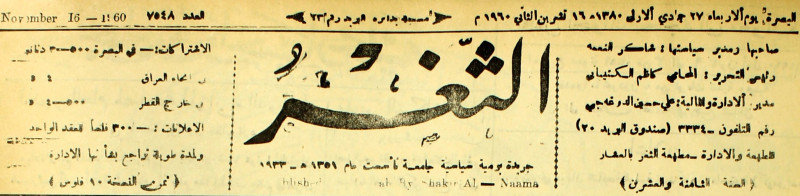 البصرة: يوم الاربعاء ٢٧ جمادي الاولى ١٣٨٠ هـ ١٦ تشرين الثاني ١٩٦٠ م
مسجلة بدائرة البريد رقم ٢٣
العدد ٧٥٤٨
November 16 — 1960
صاحبها ومدير سياستها: شاكر النعمه
رئيس التحرير: المحامي كاظم الكشيباني
مدير الادارة والمالية: علي حسين
رقم التلفون — ٣٣٣٤ (صندوق البريد ٢٠)
المطبعة والادارة — مطبعة الثغر بالعشار
(السنة الثامنة والعشرون)
الثَّغْرُ
جريدة يومية سياسية جامعة تأسست عام ١٣٥١ هـ ١٩٣٣
By Shakir Al — Naama
الاشتراكات: — في البصرة ٥٠٠ — ٣ دنانير
و انحاء العراق
و خارج القطر ٥٠٠ — ٤
الاعلانات: — ٣٠٠ فلساً للعقد الواحد
ولمدة طويلة تراجع بشأنها الادارة
(ثمن النسخة ١٠ فلوس)